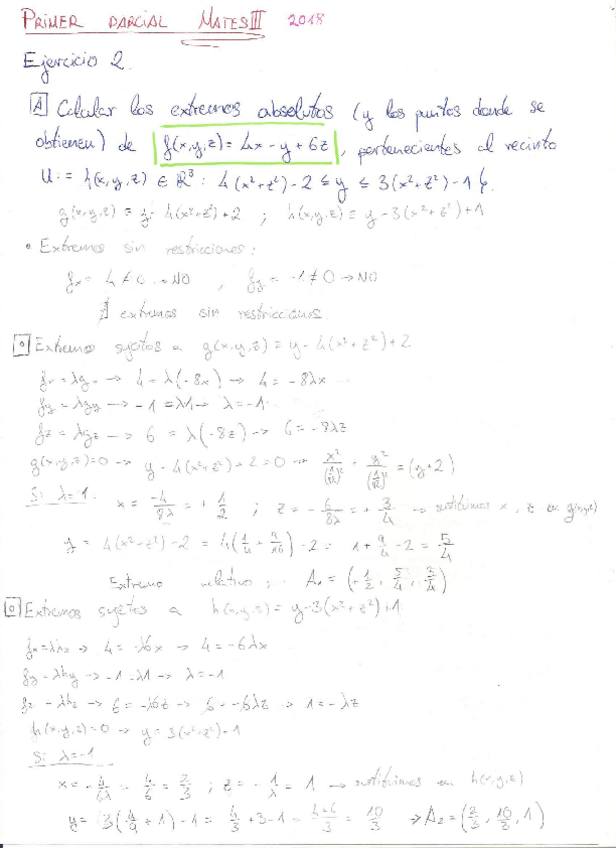 PRIMER PARCIAL MATES III 2018
Ejercicio 2.
A Calcular los extremos absolutos (y los puntos donde se
obtienen) de f(x,y,z) = 4x - y + 6z, pertenecientes al recinto
U := {(x,y,z) ∈ ℝ³ : 4(x²+z²)-2 ≤ y ≤ 3(x²+z²)-1}.
g(x,y,z) = y - 4(x²+z²)+2 ; h(x,y,z) = y-3(x²+z²)+1
• Extremos sin restricciones:
fx = 4 ≠ 0 → NO , fy = -1 ≠ 0 → NO
∄ extremos sin restricciones
Extremos sujetos a g(x,y,z) = y-4(x²+z²)+2
fx = λgx → 4 = λ(-8x) → 4 = -8λx
fy = λgy → -1 = λ1 → λ = -1
fz = λgz → 6 = λ(-8z) → 6 = -8λz
g(x,y,z)=0 → y-4(x²+z²)+2=0 = (y+2)
Si λ=-1
x = -4/8λ = + 1/2 ; z = - 6/8λ = + 3/4 → sustituimos x, z en g(x,y,z)
y = 4(x²+z²)-2 = 4(1/4 + 9/16)-2 = 1 + 9/4 - 2 = 5/4
Extremo relativo: A₁ = (-1/2, 5/4, 3/4)
Extremos sujetos a h(x,y,z) = y-3(x²+z²)+1
fx = λhx → 4 = -λ6x → 4 = -6λx
fy = λhy → -1 = λ1 → λ = -1
fz = λhz → 6 = -λ6z → 6 = -6λz → 1 = -λz
h(x,y,z)=0 → y = 3(x²+z²)-1
Si λ=-1
x = -4/6λ = 4/6 = 2/3 ; z = -1/λ = 1 → sustituimos en h(x,y,z)
y = 3(4/9 + 1) - 1 = 4/3 + 3 - 1 = 4+6/3 = 10/3 → A₂ = (2/3, 10/3, 1)